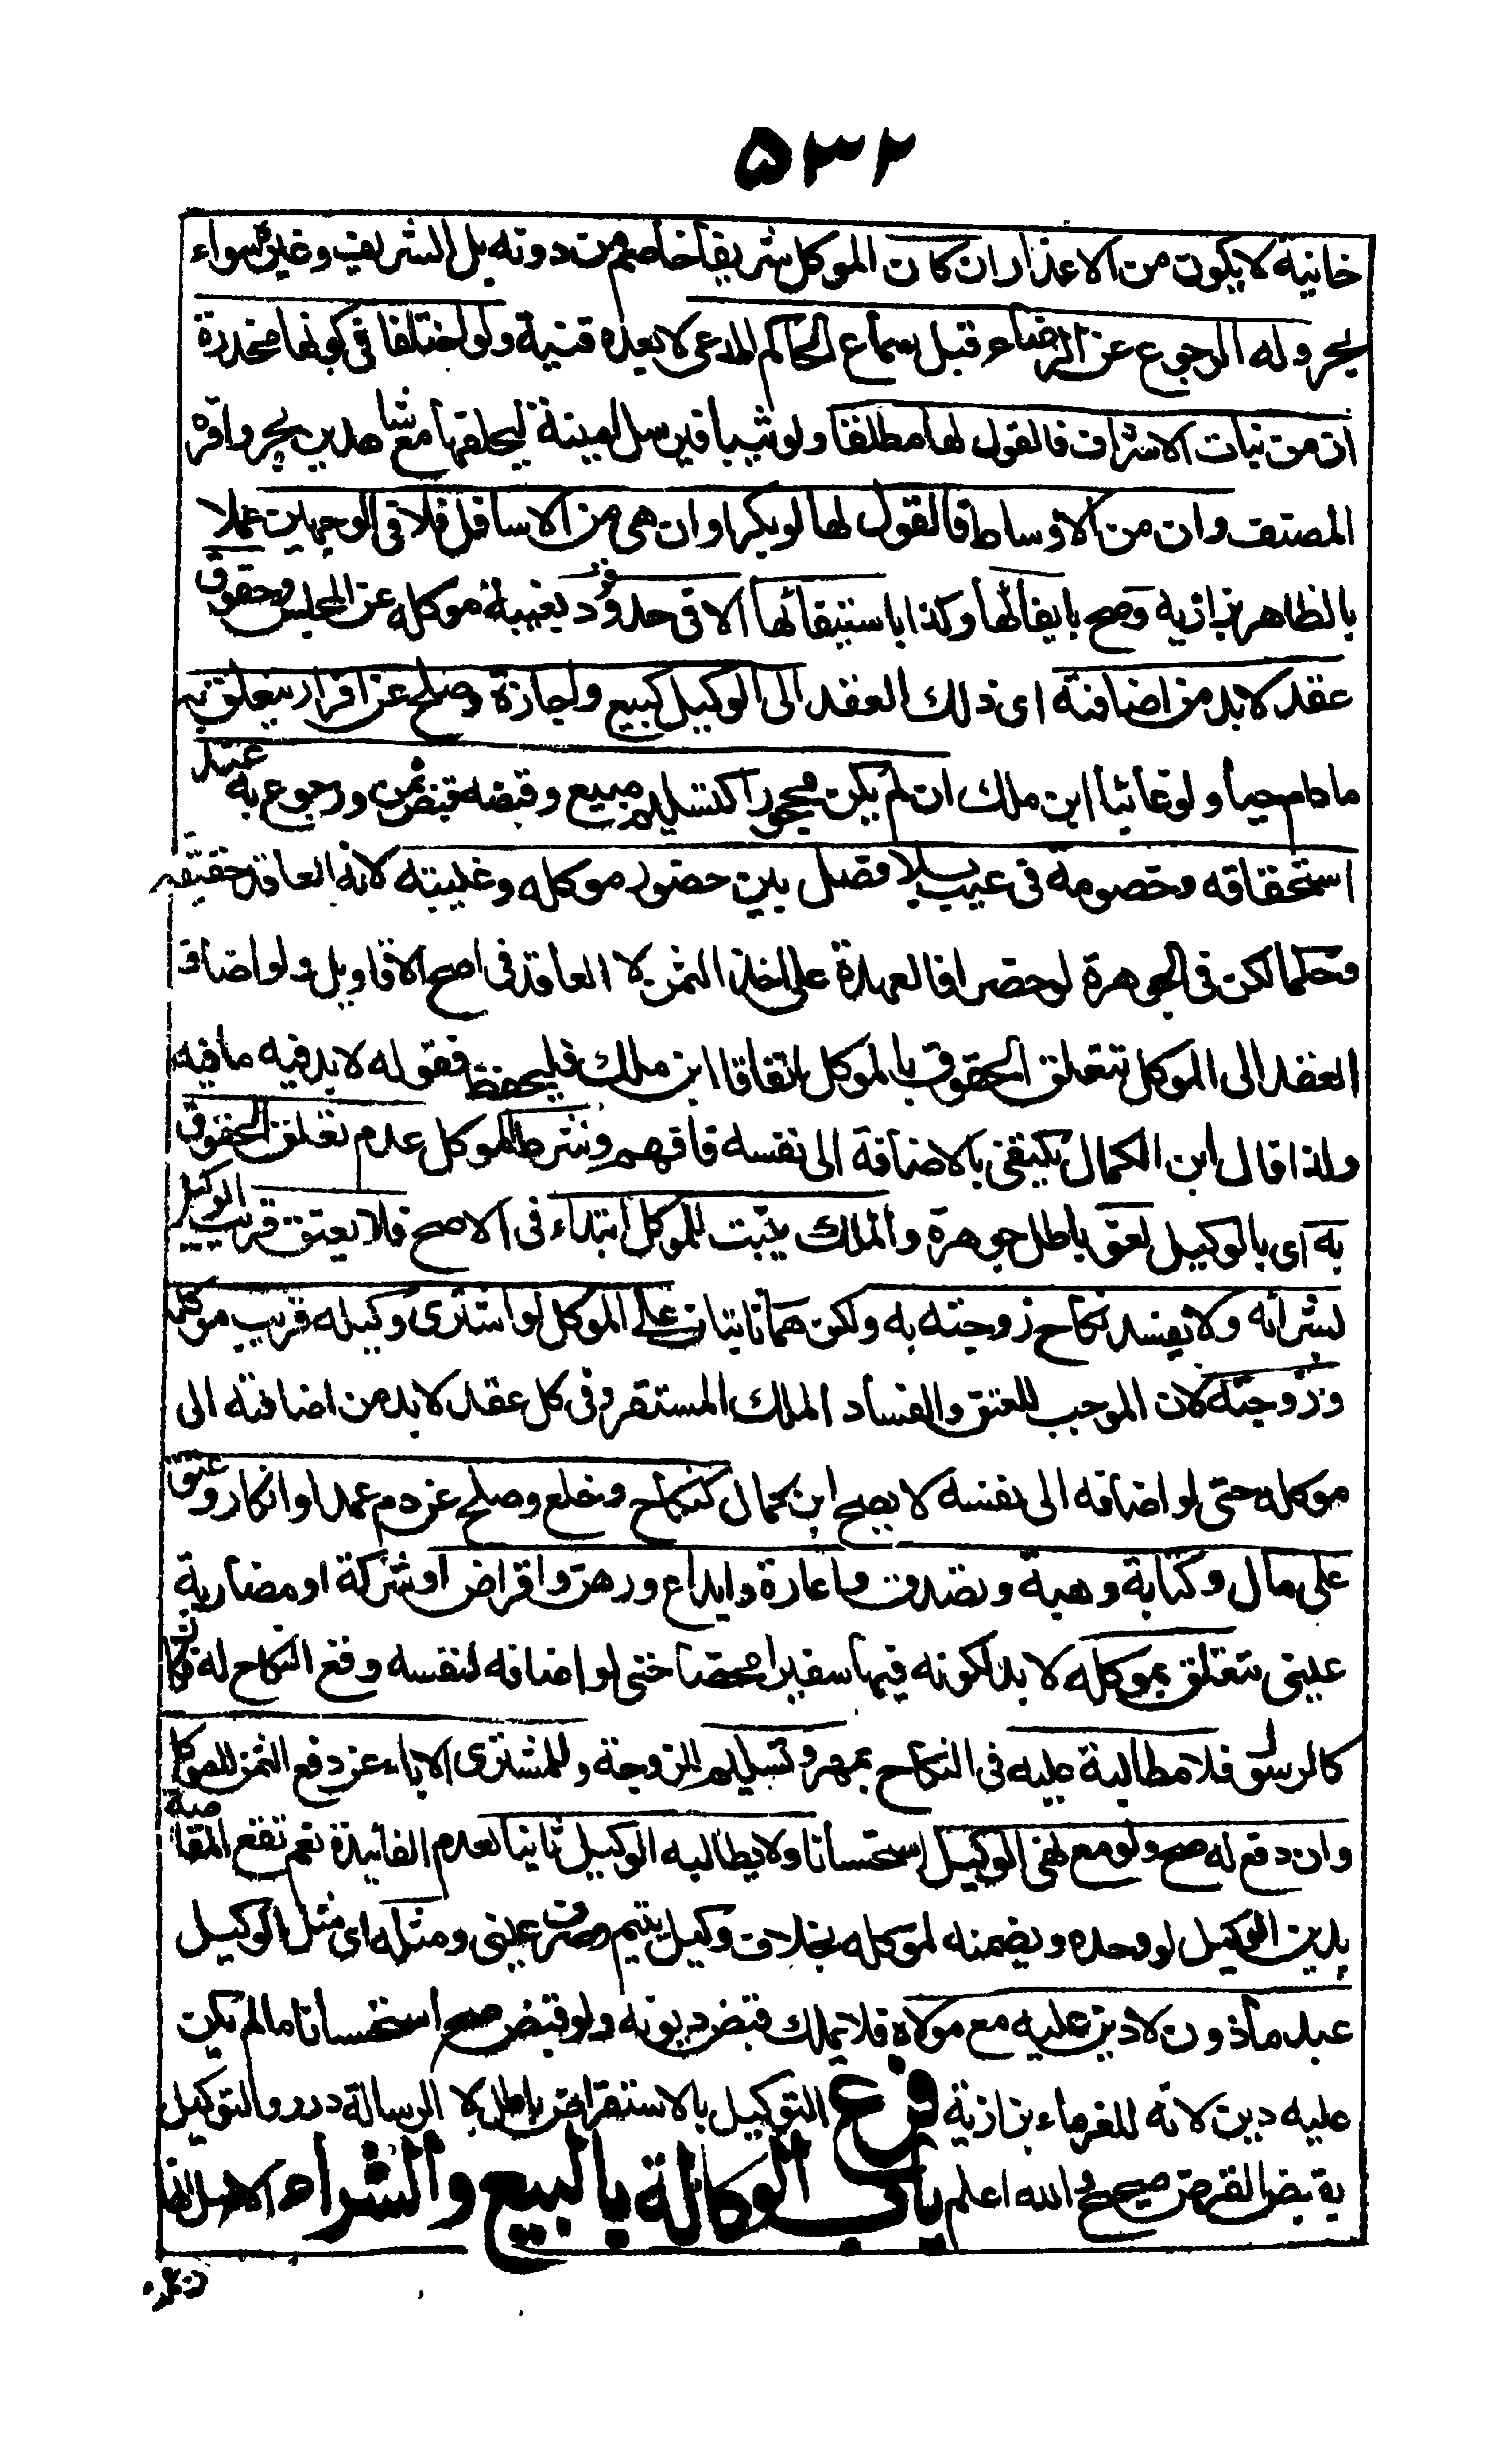 ٥٣٢
خانية لا يكون من الاعذار ان كان الموكل شريفا خاصم من دونه بل الشريف وغيره سواء
بحر وله الرجوع عن الرضاء قبل سماع الحاكم الدعوى لا بعده قنية ولو اختلفا في كونها مخدرة
ان من نبات الاشراف فالقول لها مطلقا ولو ثيبا فيرسل امينة ليحلفها مع شاهدين بحر واقره
المصنف وان من الاوساط فالقول لها لو بكرا وان هي من الاسافل فلا في الوجهين عملا
بالظاهر بزازية وصح بايفائها وكذا باستيفائها الا في حد وقود بغيبة موكله عن المجلس وحقوق
عقد لابد من اضافته اى ذلك العقد الى الوكيل كبيع واجازة وصلح عن اقرار يتعلق به
مادام حيا ولو غائبا ابن ملك ان لم يكن محجورا كتسليم مبيع وقبضه وقبض ثمن ورجوع به عند
استحقاقه وخصومة في عيب بلا فصل بين حضور موكله وغيبته لانه العاقد حقيقة
وحكما لكن في الجوهرة لو حضرا فالعهدة على اخذ الثمن لا العاقد في اصح الاقاويل ولو اضاف
العقد الى الموكل تتعلق الحقوق بالموكل اتفاقا ابن ملك فليحفظ فقوله لابد فيه ما فيه
ولذا قال ابن الكمال يكتفي بالاضافة الى نفسه فافهم وشرط الموكل عدم تعلق الحقوق
به اى بالوكيل لغو باطل جوهرة والملك يثبت للموكل ابتداء في الاصح فلا يعتق قريب الوكيل
بشرائه ولا يفسد نكاح زوجته به ولكن هما ثابتان على الموكل لو اشترى وكيله قريب موكله
وزوجته لان الموجب للعتق والفساد الملك المستقر وفي كل عقد لابد من اضافته الى
موكله حتى لو اضافه الى نفسه لا يصح ابن كمال كنكاح وخلع وصلح عن دم عمد او انكار وعتق
على مال وكتابة وهبة وتصدق واعارة وايداع ورهن واقراض او شركة او مضاربة
عيني تتعلق بموكله لا به لكونه فيها سفيرا محضا حتى لو اضافه لنفسه وقع النكاح له فكان
كالرسول فلا مطالبة عليه في النكاح بمهر وتسليم للزوجة وللمشترى الاباء عن دفع الثمن للموكل
وان دفع له صح ولو مع نهى الوكيل استحسانا ولا يطالبه الوكيل ثانيا لعدم الفائدة نعم تقع المقاصة
بدين الوكيل لو وحده ويضمنه لموكله بخلاف وكيل يتيم وصرف عيني ومثله اى مثل الوكيل
عبد مأذون لا دين عليه مع مولاه فلا يملك قبض ديونه ولو قبض صح استحسانا ما لم يكن
عليه دين لانه للغرماء بزازية فرع التوكيل بالاستقراض باطل لا الرسالة درر والتوكيل
بقبض القرض صحيح والله اعلم باب الوكالة بالبيع والشراء الاصل انها